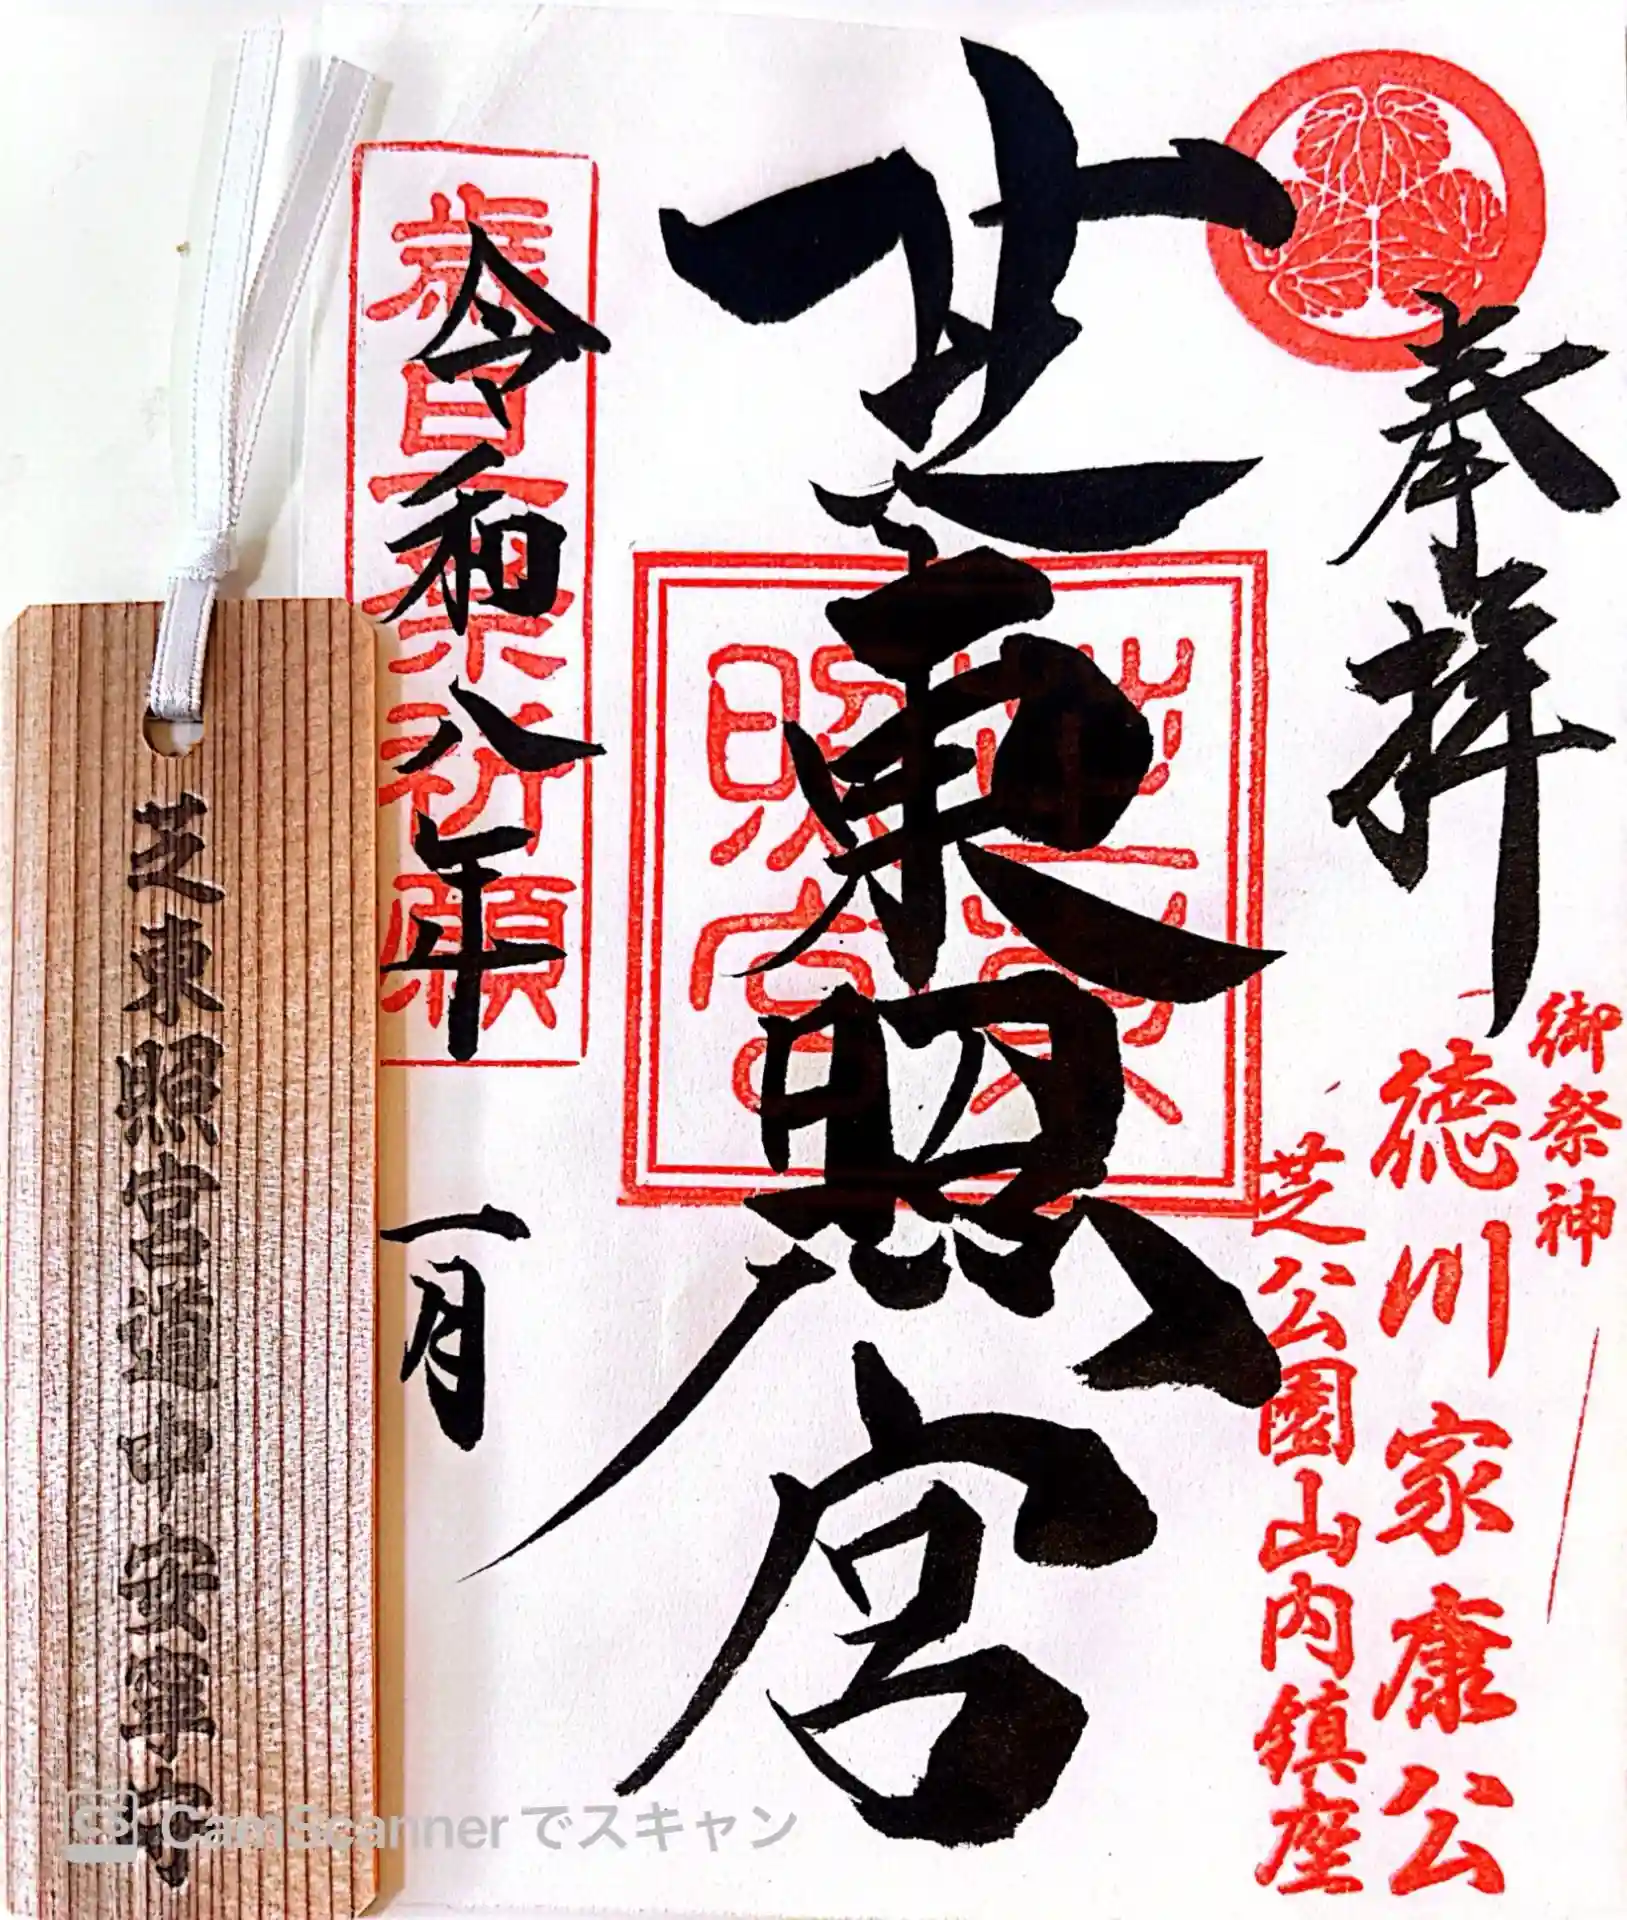 奉拝
御祭神
徳川家康公
芝公園山内鎮座
芝東照宮
芝東照宮
歳旦祭祈願
令和八年
一月
芝東照宮道中安寧守
CS CamScannerでスキャン